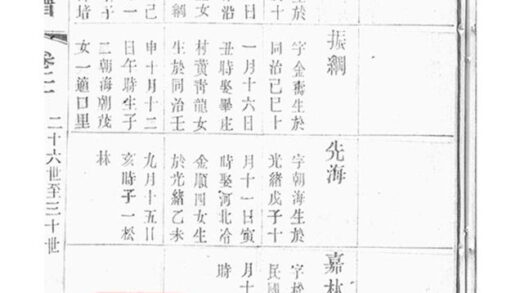 生於
振綱
字金壽生於
同治己巳十
一月十六日
丑時娶畢庄
村黃青龍女
生於同治壬
申十月十二
日午時生子
二朝海朝茂
女一適口里
先海
字朝海生於
光緒戊子十
月十一日寅
時娶河北冷
金順四女生
於光緒乙未
九月十五日
亥時子一松
林
嘉林
字松
民國
月十
時
譜
卷二
二十六世至三十世